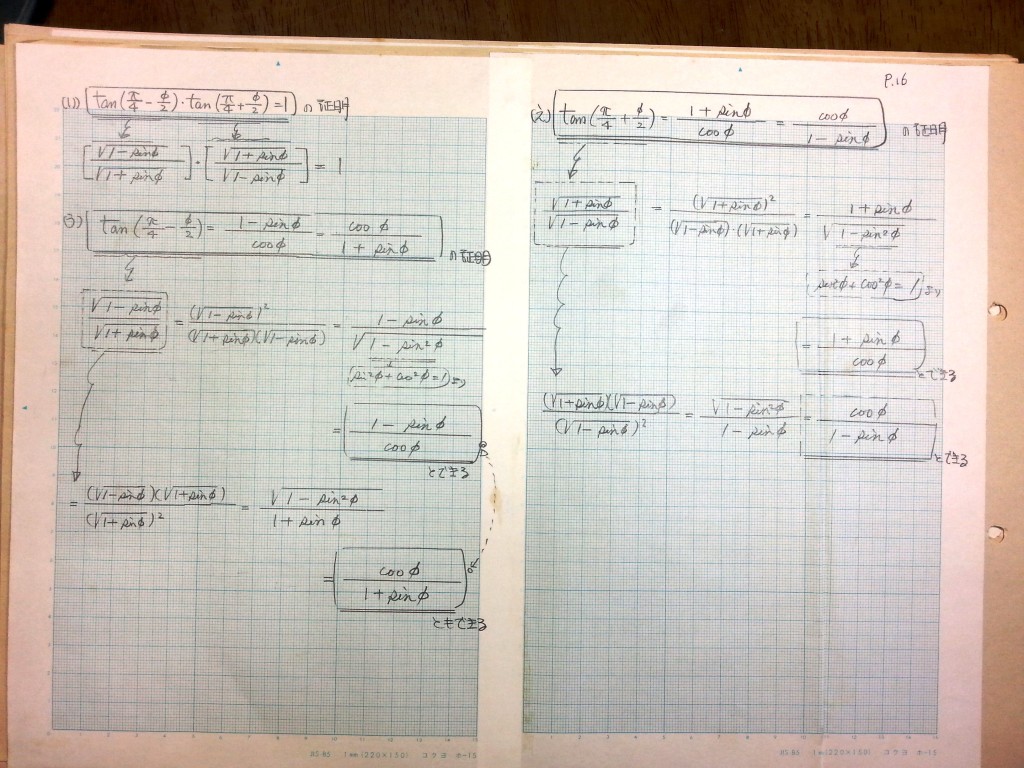 (い) tan(π/4 − φ/2)・tan(π/4 + φ/2) = 1 の証明
[√(1−sinφ) / √(1+sinφ)]・[√(1+sinφ) / √(1−sinφ)] = 1
(う) tan(π/4 − φ/2) = (1−sinφ)/cosφ = cosφ/(1+sinφ) の証明
√(1−sinφ)/√(1+sinφ) = (√(1−sinφ))²/(√(1+sinφ))(√(1−sinφ)) = (1−sinφ)/√(1−sin²φ)
sin²φ+cos²φ=1より
= (1−sinφ)/cosφ
とできる
= (√(1−sinφ))(√(1+sinφ))/(√(1+sinφ))² = √(1−sin²φ)/(1+sinφ)
= cosφ/(1+sinφ)
ともできる
P.16
(え) tan(π/4 + φ/2) = (1+sinφ)/cosφ = cosφ/(1−sinφ) の証明
√(1+sinφ)/√(1−sinφ) = (√(1+sinφ))²/(√(1−sinφ))・(√(1+sinφ)) = (1+sinφ)/√(1−sin²φ)
sin²φ+cos²φ=1より
= (1+sinφ)/cosφ
とできる
(√(1+sinφ))(√(1−sinφ))/(√(1−sinφ))² = √(1−sin²φ)/(1−sinφ) = cosφ/(1−sinφ)
とできる
1mm(220×150) コクヨ ホ-15
1mm(220×150) コクヨ ホ-15